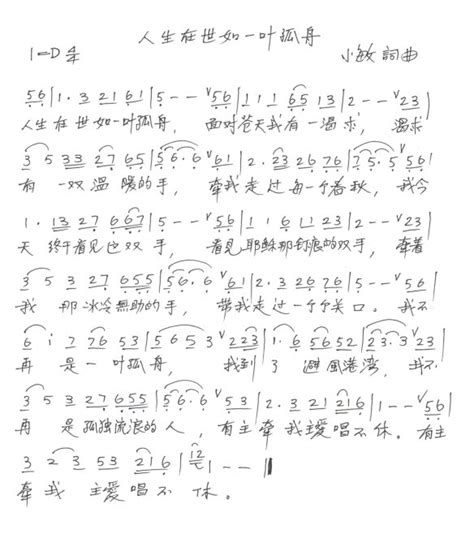 人生在世如一叶孤舟
1=D 4/4 小敏詞曲
56|1·3 21 61|5--ˇ56|111 65 13|2--ˇ23|
人生在世如一叶孤舟, 面对苍天我有一渴求, 渴求
3 5 33 27 65|56·6ˇ61|2·23 26 76|75·5ˇ56|
有一双温暖的手, 牵我走过每一个春秋, 我今
1·13 27 667|5--ˇ56|1 1 6 11 23|2--ˇ23|
天终于看见这双手, 看见耶稣那钉痕的双手, 牵着
3 5 3 27 655|56·6ˇ61|2·3 26 76|5--ˇ56|
我那冰冷無助的手, 带我走过一个个关口。我不
6 i 7 76 53|5 6 5 3ˇ223|1·6 56 52|23·3ˇ23|
再是一叶孤舟, 我找到了避風港湾, 我不
3 5 3 27 655|56·6ˇ53|2·3 21 216|1--ˇ56|
再是孤独流浪的人, 有主牵我主愛唱不休。有主
3 2 3 53 216|12|1--‖
牵我主愛唱不休。